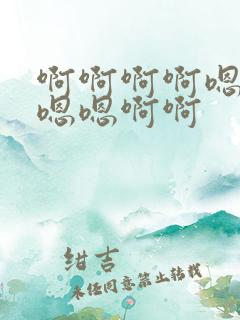 啊啊啊啊嗯
嗯嗯啊啊
绀吉
未经同意禁止转载